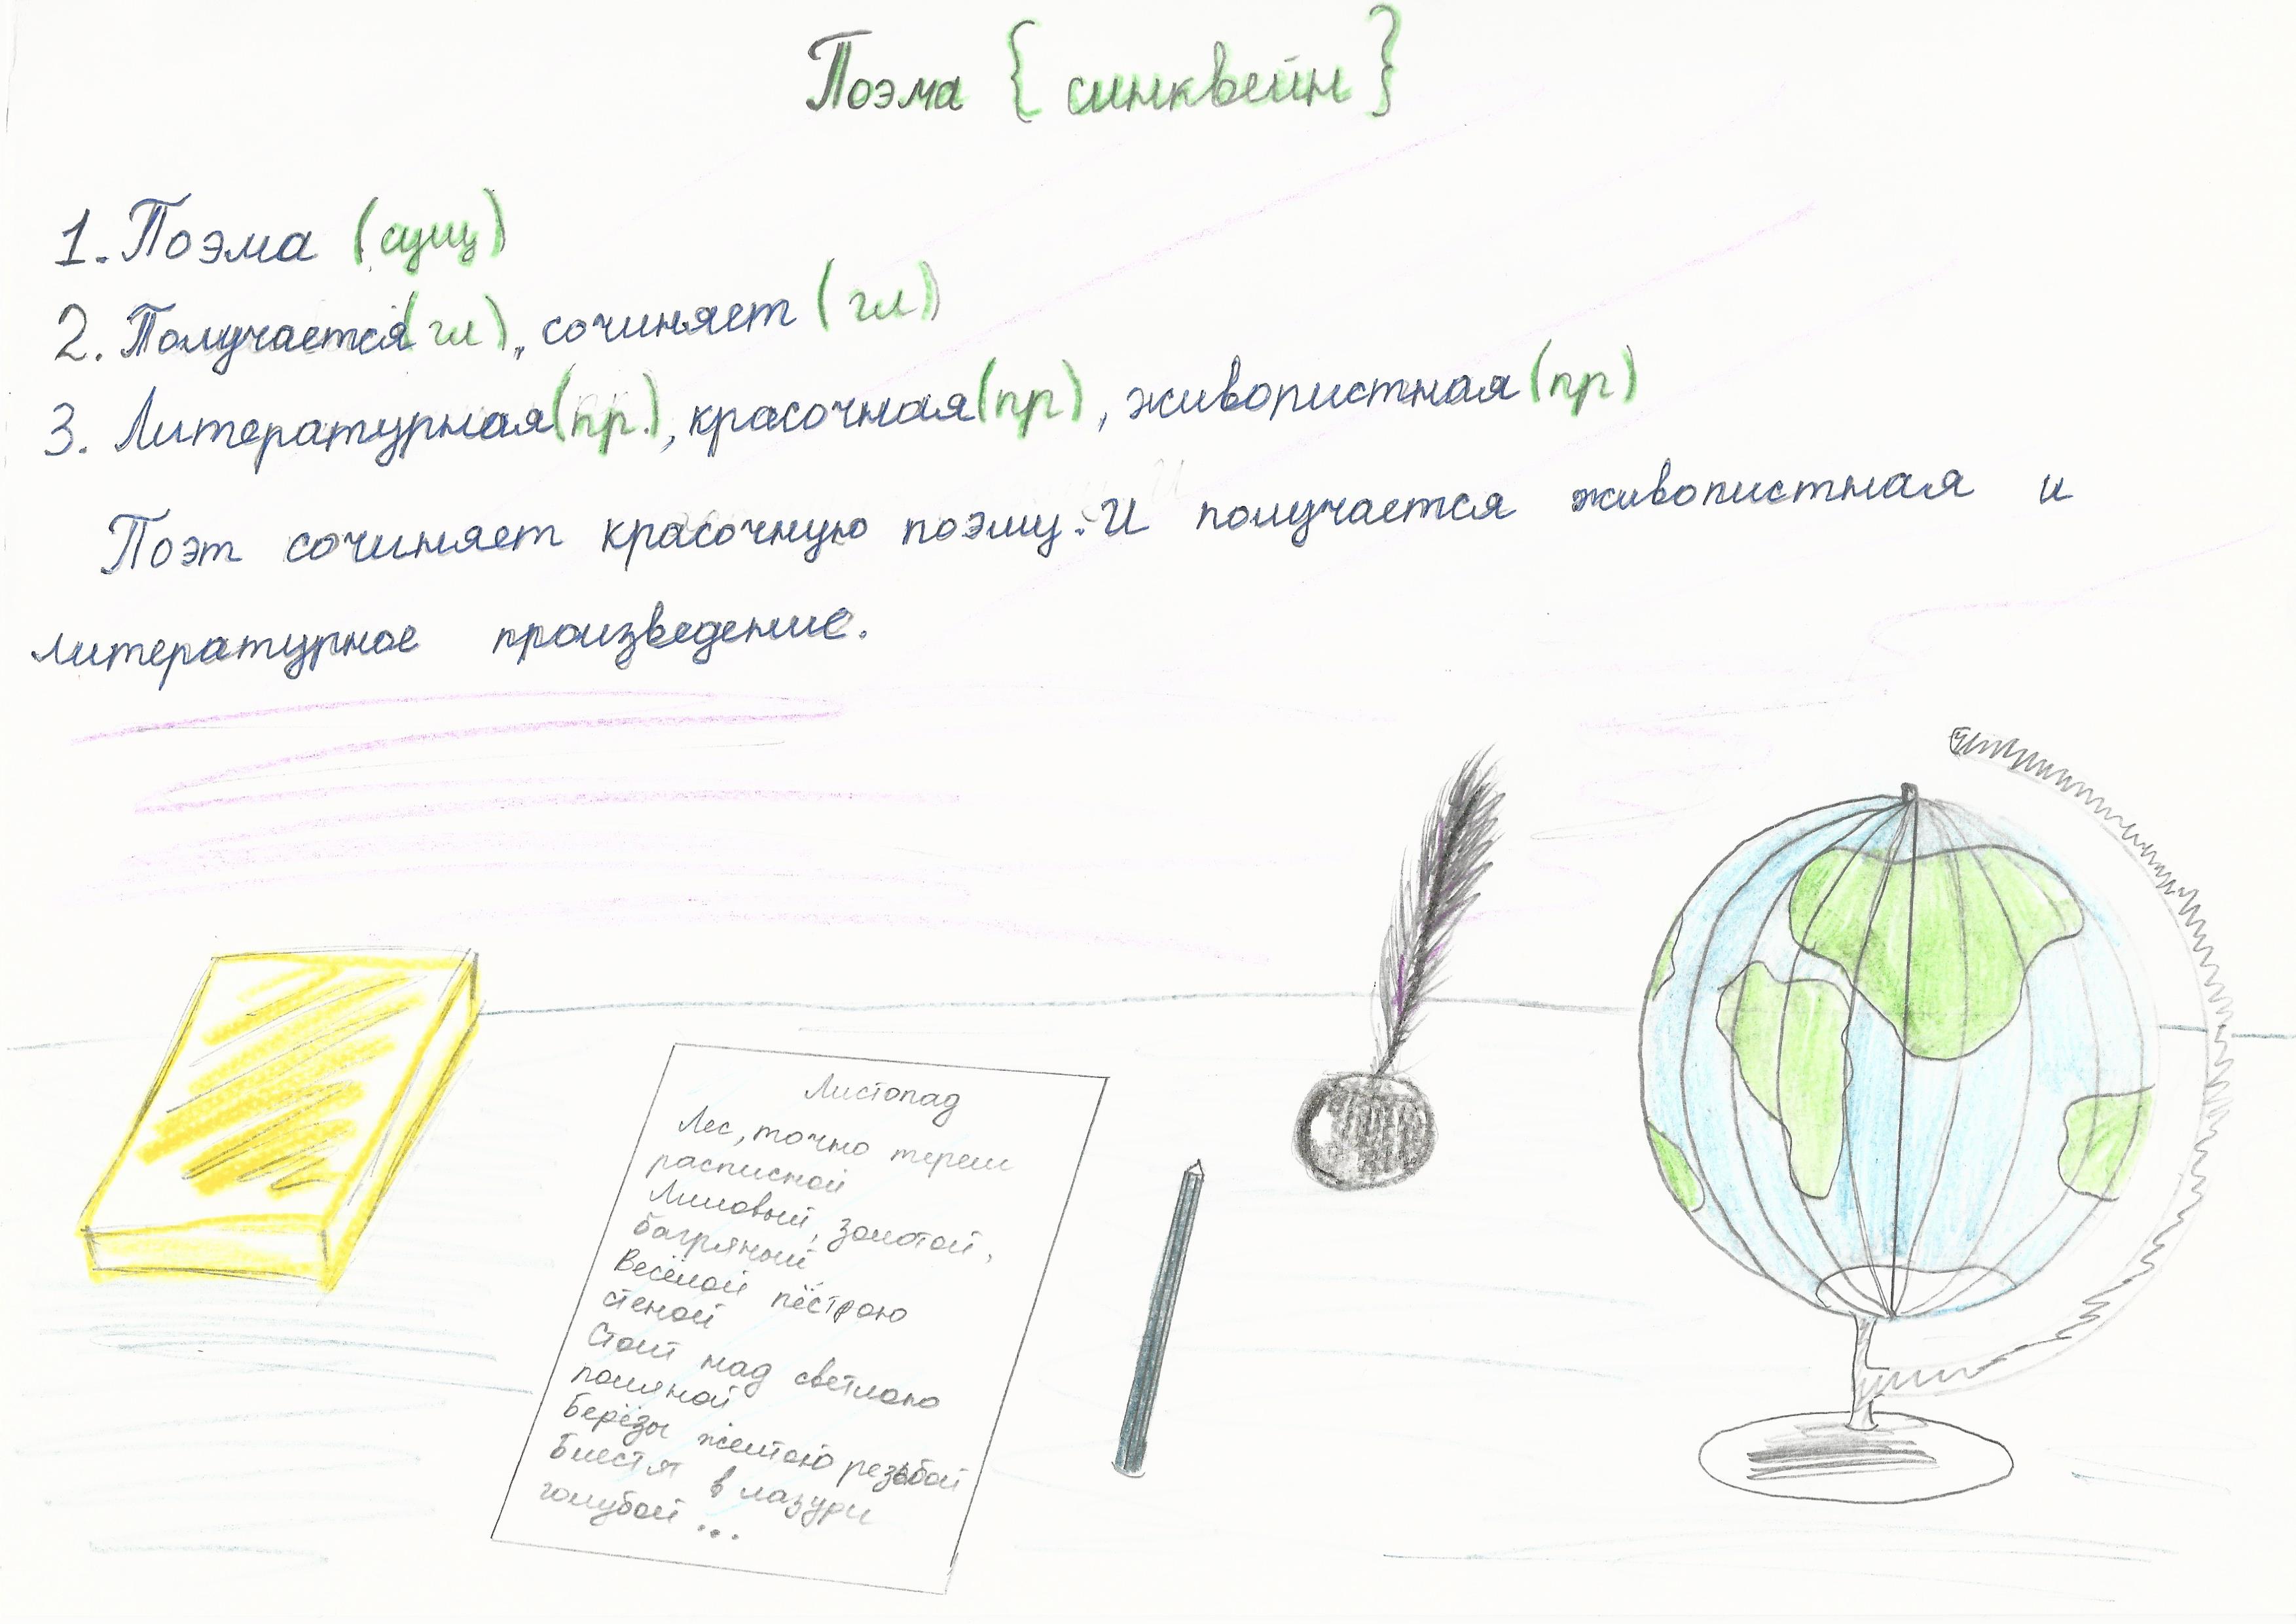 Поэма { синквейн }
1. Поэма (сущ)
2. Получается(гл), сочиняет (гл)
3. Литературная(пр.), красочная(пр), живопистная(пр)
Поэт сочиняет красочную поэму. И получается живопистная и
литературное произведение.
Листопад
Лес, точно терем
расписной
Лиловый, золотой,
багряный
Весёлой пёстрою
стеной
Стоит над светлою
поляной
Берёзы желтою резьбой
Блестят в лазури
голубой ...